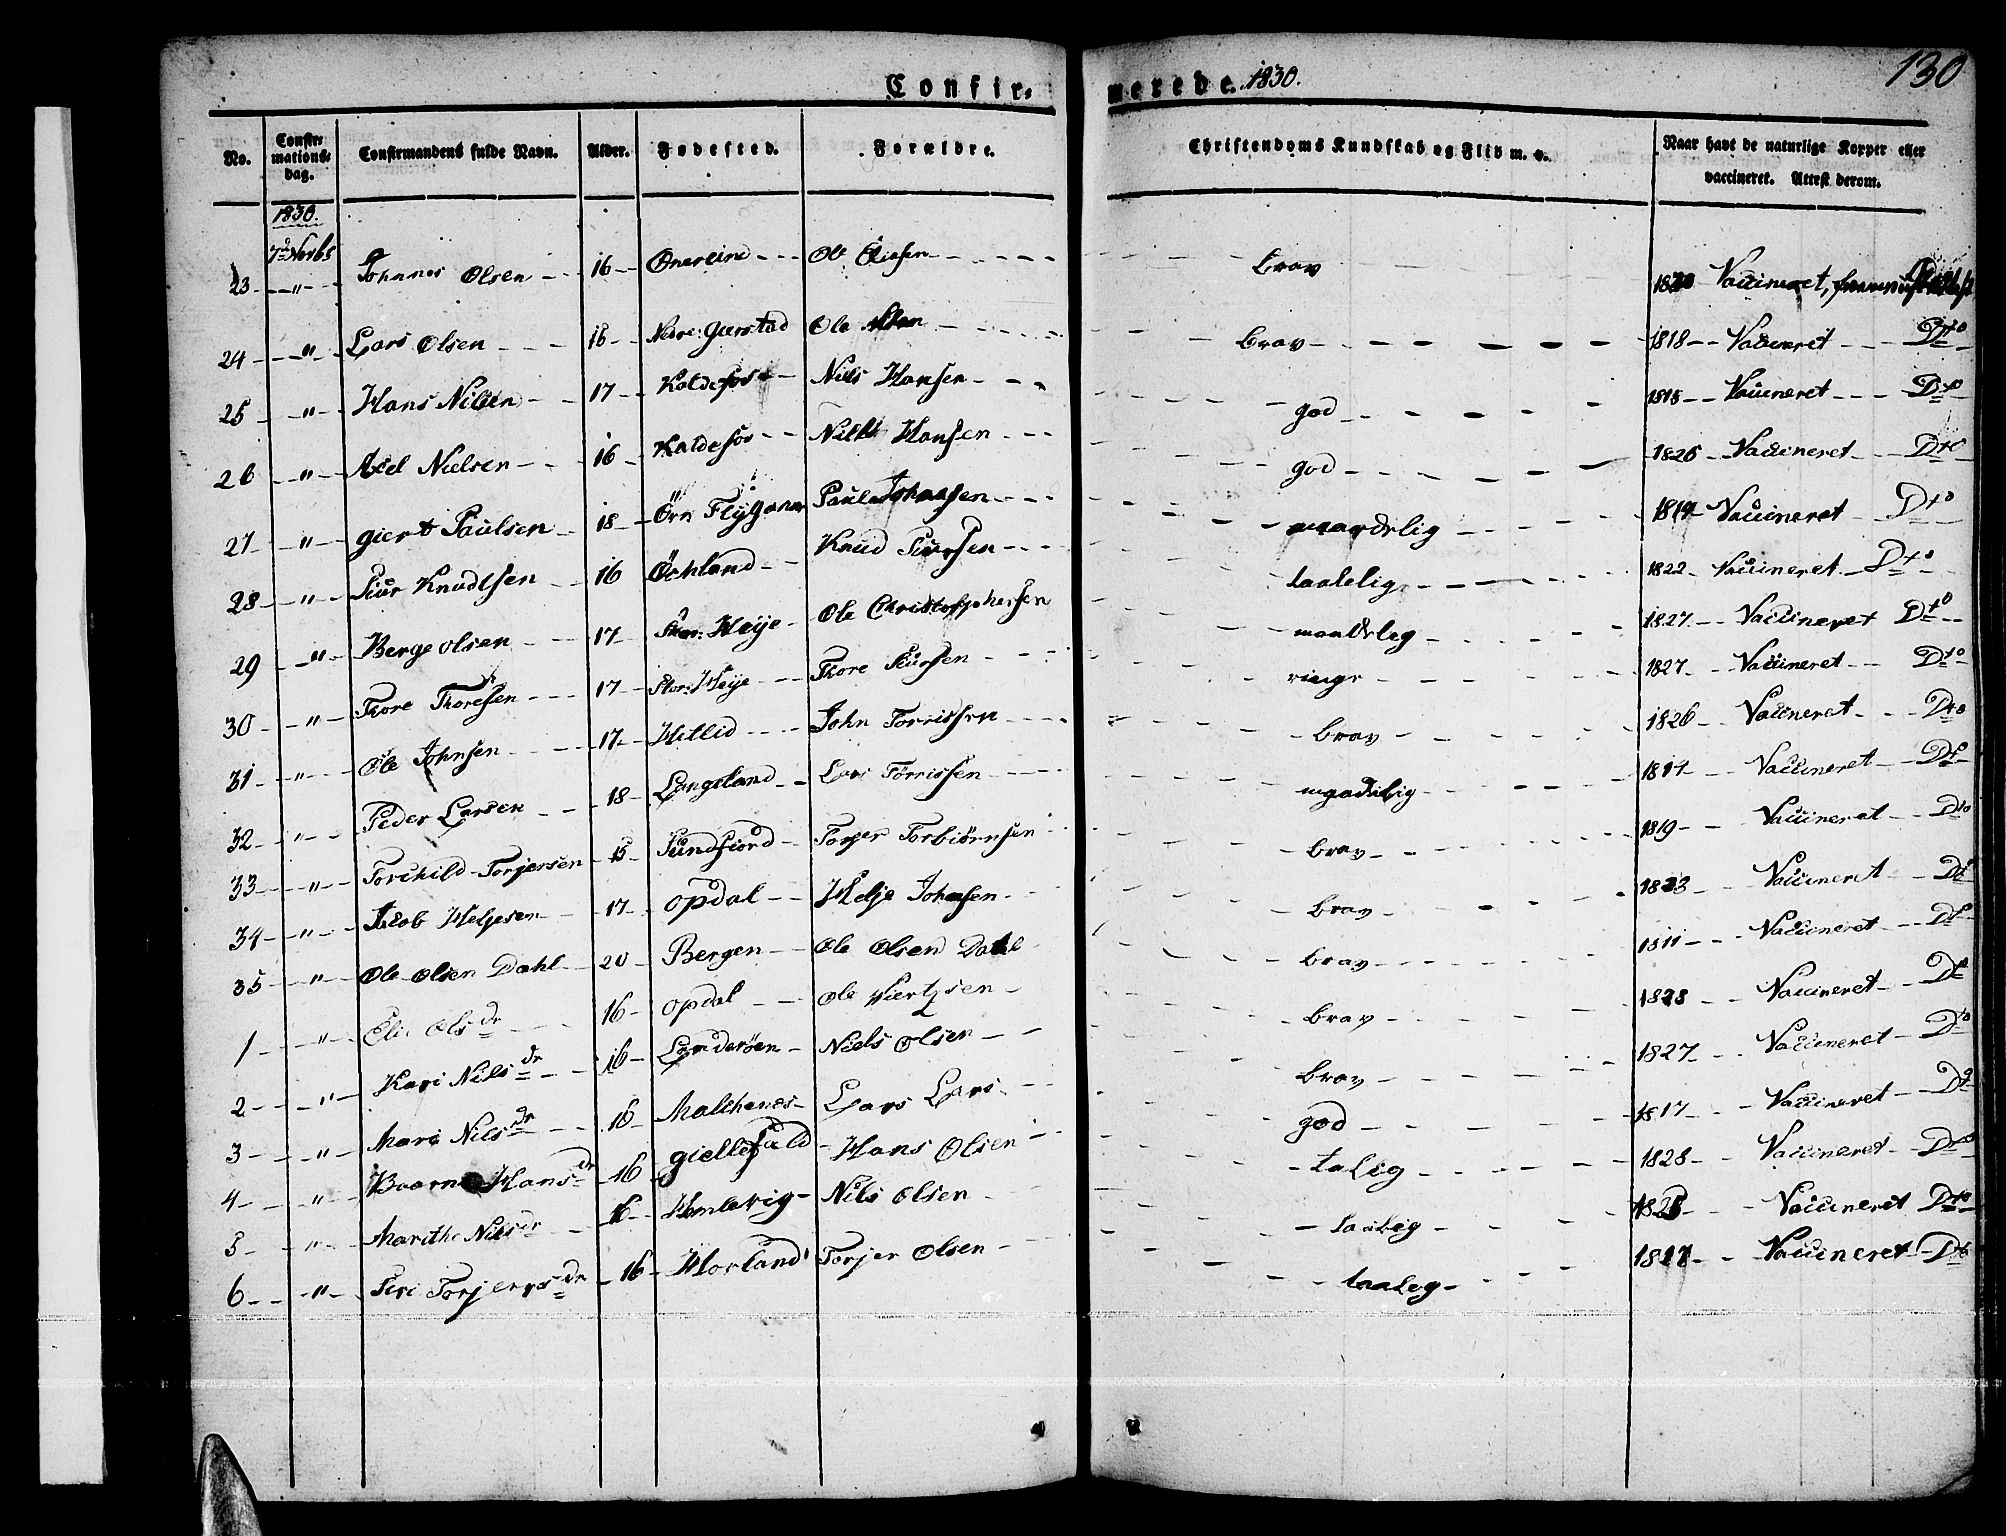 130
Confir- merede. 1830.
No. Confir-mations-dag. Confirmandens fulde Navn. Alder. Fødested. Forældre. Christendoms Kundskab og Flid m. v. Naar havt de naturlige Kopper eller vaccineret. Attest derom.
1830.
7de Novbr
23 " Johannes Olsen 16 Ole brav Vaccineret,
24 " Lars Olsen 16 Nedre Gierstad Ole brav 1818 Vaccineret Dto
25 " Hans Nilsen 17 Koldefos Niels Hansen god 1818 Vaccineret Dto
26 " Axel Nielsen 16 Koldefos Hansen god 1826 Vaccineret Dto
27 " giert Paulsen 18 Paul Johnsen maadelig 1814 Vaccineret Dto
28 " Siur Knudtsen 16 Knud Siursen taalelig 1822 Vaccineret Dto
29 " Berge Olsen 17 Ole Christophersen maadeleg 1827 Vaccineret Dto
30 " Thore Thoresen 17 Thore Siursen ringe 1827 Vaccineret Dto
31 " Ole Johnsen 17 Hellid John Torrissen brav 1826 Vaccineret Dto
32 " Peder Larsen 18 Langeland Lars Torrissen maadelig 1814 Vaccineret Dto
33 " Torchild Torjersen 15 Sundfiord Torjer Torbiørnsen brav 1819 Vaccineret Dto
34 " Jacob Heljesen 17 Opdal Helje Johnsen brav 1823 Vaccineret Dto
35 " Ole Olsen Dahl 20 Bergen Ole Olsen Dahl brav 1811 Vaccineret Dto
1 " Eli Olsdr 16 Opdal Ole brav 1828 Vaccineret Dto
2 " Kari Nilsdr 16 Landerøen Niels Olsen brav 1827 Vaccineret Dto
3 " Mari Nilsdr 16 Malchenes Lars Lars god 1817 Vaccineret Dto
4 " Hansdr 16 Hans Olsen talig 1828 Vaccineret Dto
5 " Marithe Nilsdr 16 Nils Olsen taaleg Vaccineret Dto
6 " Siri Torjersdr 16 Horland Torjer Olsen taaleg Vaccineret Dto